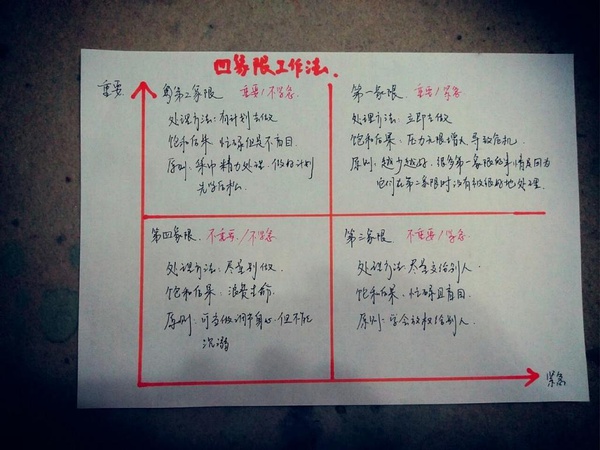 四象限工作法.
重要
第二象限 重要/不紧急
处理办法:有计划去做
饱和后果:忙碌但是不盲目
原则:集中精力处理,做好计划
先紧后松
第一象限 重要/紧急
处理办法:立即去做
饱和后果:压力无限增大导致危机
原则:越少越好,很多第一象限的事情是因为
它们在第二象限时没有被很好地处理.
第四象限. 不重要/不紧急
处理办法:尽量别做.
饱和后果:浪费生命.
原则:可当做调节身心,但不能
沉溺
第三象限. 不重要/紧急
处理办法:尽量交给别人.
饱和后果:忙碌且盲目.
原则:学会放权给别人.
紧急